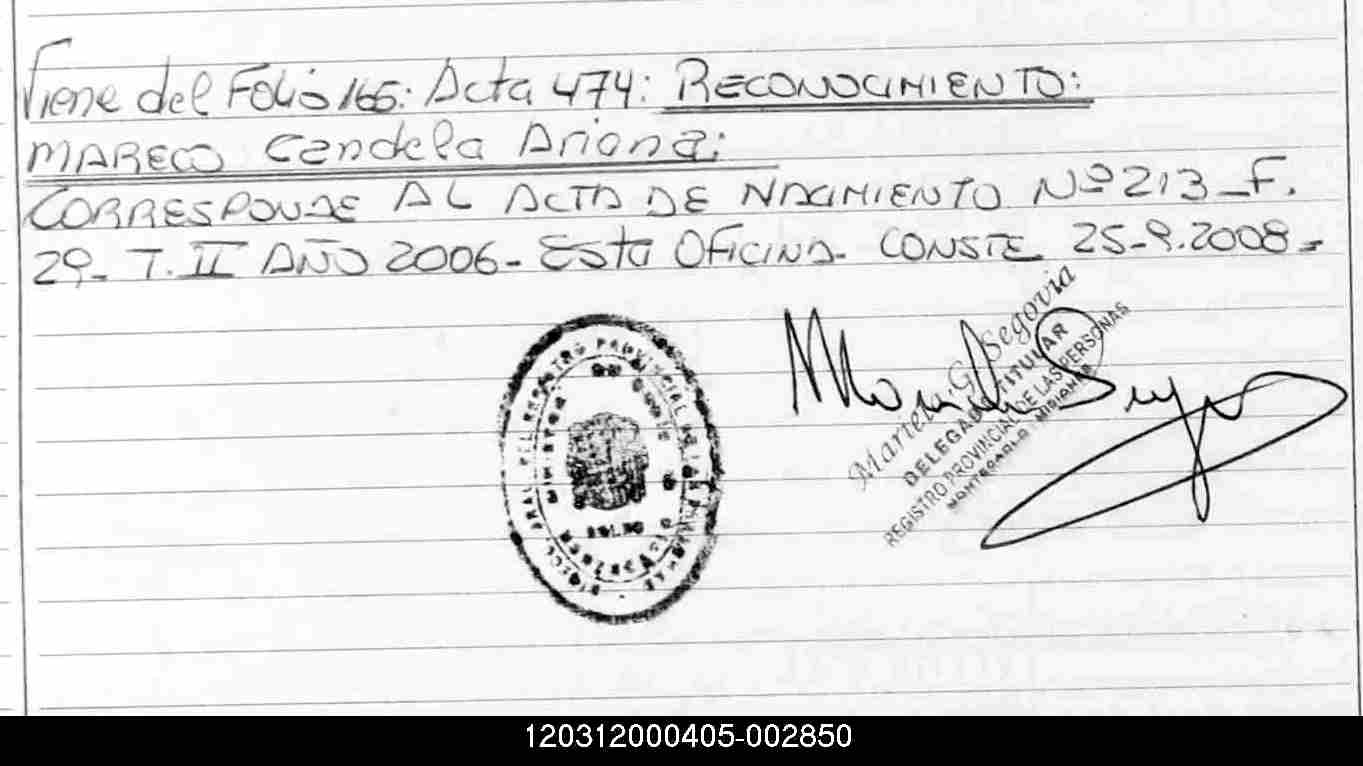 Viene del Folio 165: Acta 474: RECONOCIMIENTO:
MARECO Candela Ariana:
CORRESPONDE AL ACTA DE NACIMIENTO Nº 213_F.
29_ T. II AÑO 2006_ Esta OFICINA_ CONSTE 25_9.2008_
REGISTRO PROVINCIAL DE
Marta G. Segovia
DELEGADA TITULAR
REGISTRO PROVINCIAL DE LAS PERSONAS
MONTECARLO - MISIONES
120312000405-002850